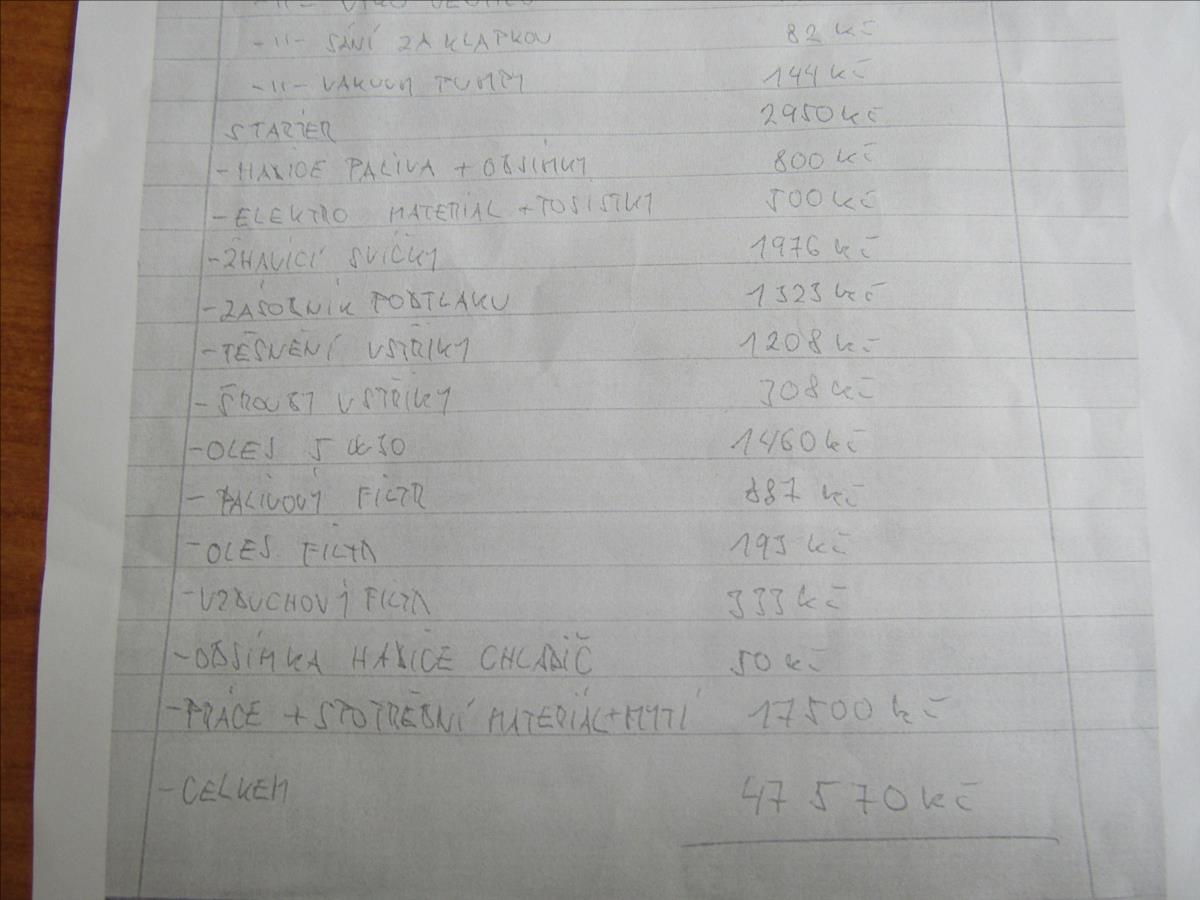 -11- SÁNÍ ZA KLAPKOU 82 Kč
-11- VAKUUM PUMPY 144 Kč
STARTER 2950 Kč
-HADICE PALIVA + OBJÍMKY 800 Kč
-ELEKTRO MATERIAL + POJISTKY 500 Kč
-ŽHAVÍCÍ SVÍČKY 1976 Kč
-ZÁSOBNÍK PODTLAKU 1323 Kč
-TĚSNĚNÍ VSTŘIKY 1208 Kč
-ŠROUBY VSTŘIKY 308 Kč
-OLEJ 5W30 1460 Kč
-PALIVOVÝ FILTR 887 Kč
-OLEJ. FILTR 193 Kč
-VZDUCHOVÝ FILTR 333 Kč
-OBJÍMKA HADICE CHLADIČ 50 Kč
-PRÁCE + SPOTŘEBNÍ MATERIÁL+MYTÍ 17500 Kč
-CELKEM 47 570 Kč